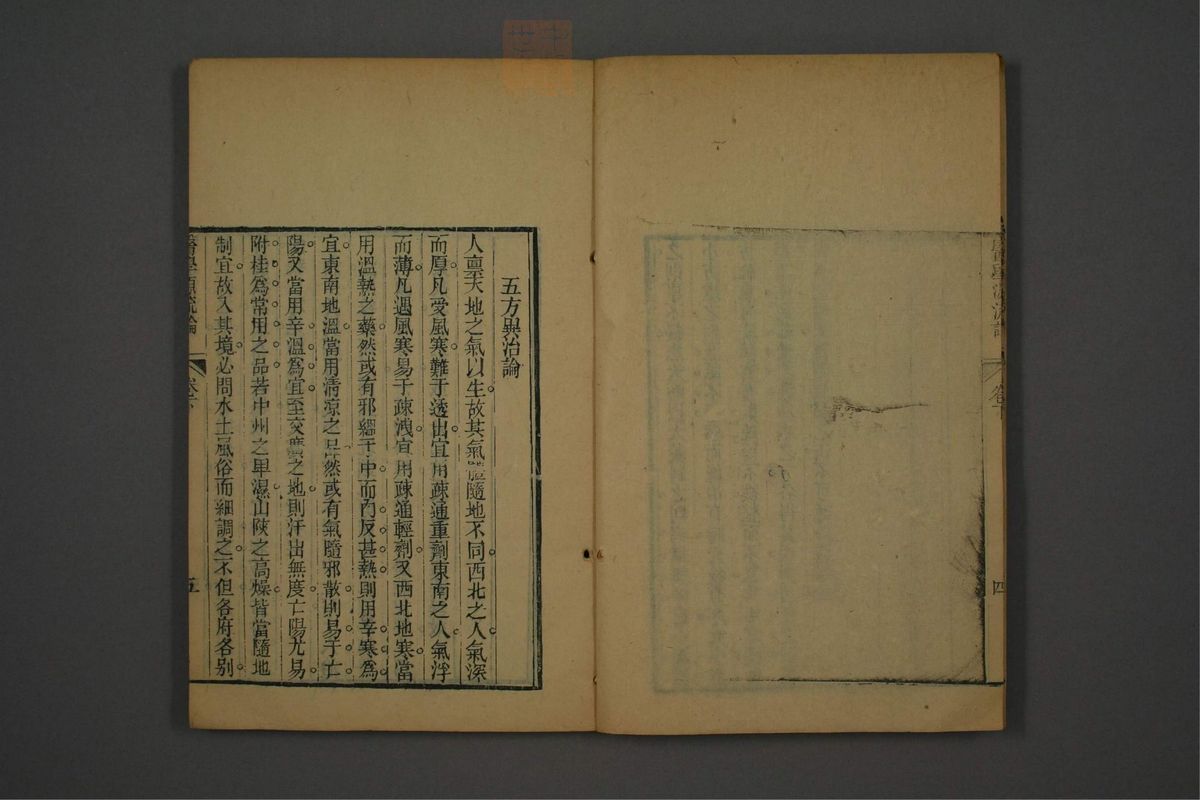 醫學源流論
卷下
四
五方異治論
人禀天地之氣以生故其氣體隨地不同西北之人氣深
而厚凡受風寒難于透出宜用疎通重劑東南之人氣浮
而薄凡遇風寒易于疎洩宜用疎通輕劑又西北地寒當
用溫熱之藥然或有邪緼于中而內反甚熱則用辛寒爲
宜東南地溫當用清凉之品然或有氣隨邪散則易于亡
陽又當用辛溫爲宜至交廣之地則汗出無度亡陽尤易
附桂爲常用之品若中州之卑濕山陝之高燥皆當隨地
制宜故入其境必問水土風俗而細調之不但各府各别
醫學源流論
卷下
五